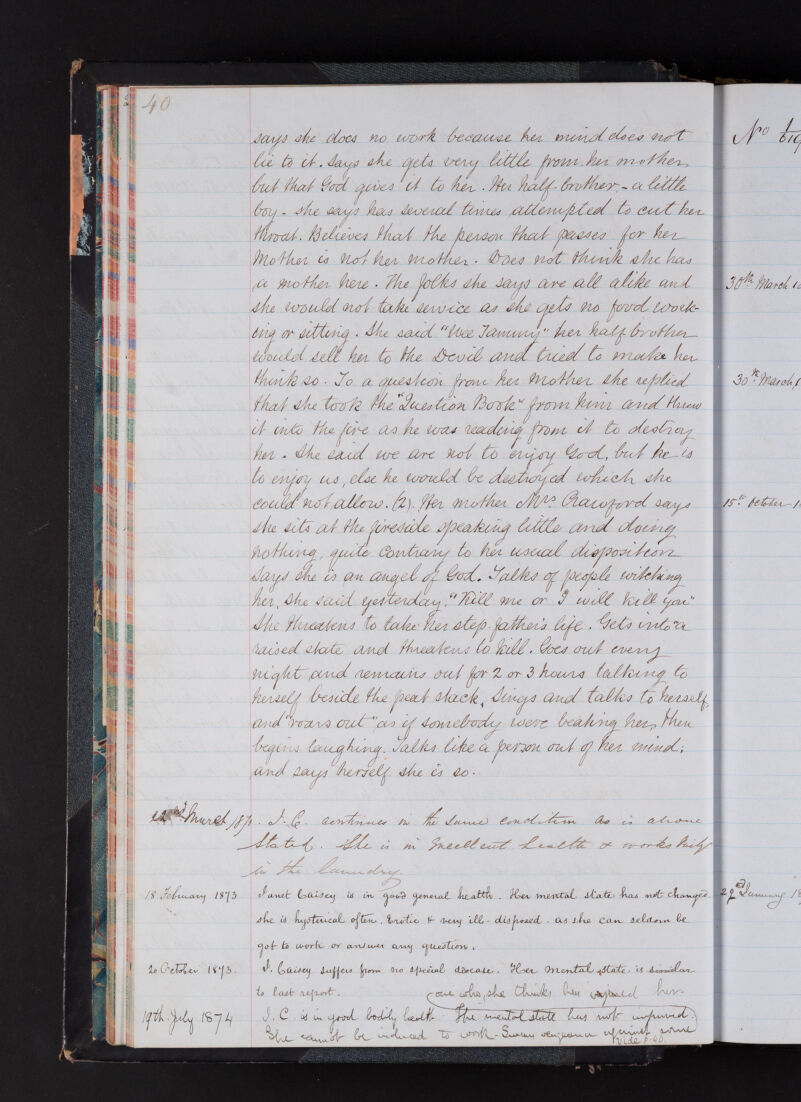 40
says she does no work because her mind does not
lie to it. Says she gets very little from her mother
but that God gives it to her. Her half-brother, - a little
boy - she says has several times attempted to cut her
throat. Believes that the person that passes for her
Mother is not her mother. Does not think she has
a mother here. The folks she says are all alike and
she would not take service as she gets no food work-
ing or sitting. She said "Wee Tammy" her half brother
would sell her to the Devil and tried to make her
think so. To a question from her Mother she replied
that she took the "Question Book" from him and threw
it into the fire as he was reading from it to destroy
her. She said we are not to enjoy God, but he is
to enjoy us, else he would be destroyed which she
could not allow. (2). Her mother Mrs. Crawford says
she sits at the fireside speaking little and doing
nothing, quite contrary to her usual disposition
Says she is an angel of God. Talks of people witching
her, She said yesterday, "Kill me or I will kill you"
She threatens to take her step-father's life. Gets into a
raised state and threatens to kill. Goes out every
night and remains out for 2 or 3 hours talking to
herself beside the peat stack, Sings and talks to herself,
and "roars out" as if somebody were beating her, then
begins laughing. Talks like a person out of her mind;
and says herself she is so.
22nd March J. C. continues in the same condition as is above
Stated. She is in Excellent health & works
in the laundry
18 February 1873 Janet Caisey is in good general health. Her mental state has not changed.
she is hysterical often. Erotic & very ill-disposed. as she can seldom be
got to work or answer any question.
20 October 1873. J. Caisey suffers from no special disease. Her mental state is similar
to last report.
one who she thinks has injured her
19th July 1874 J. C is in good bodily health The mental state has not improved.
She cannot be induced to work - Swears vengeance against some
Vide p.
No
30th March
30th March
15th October
22d January